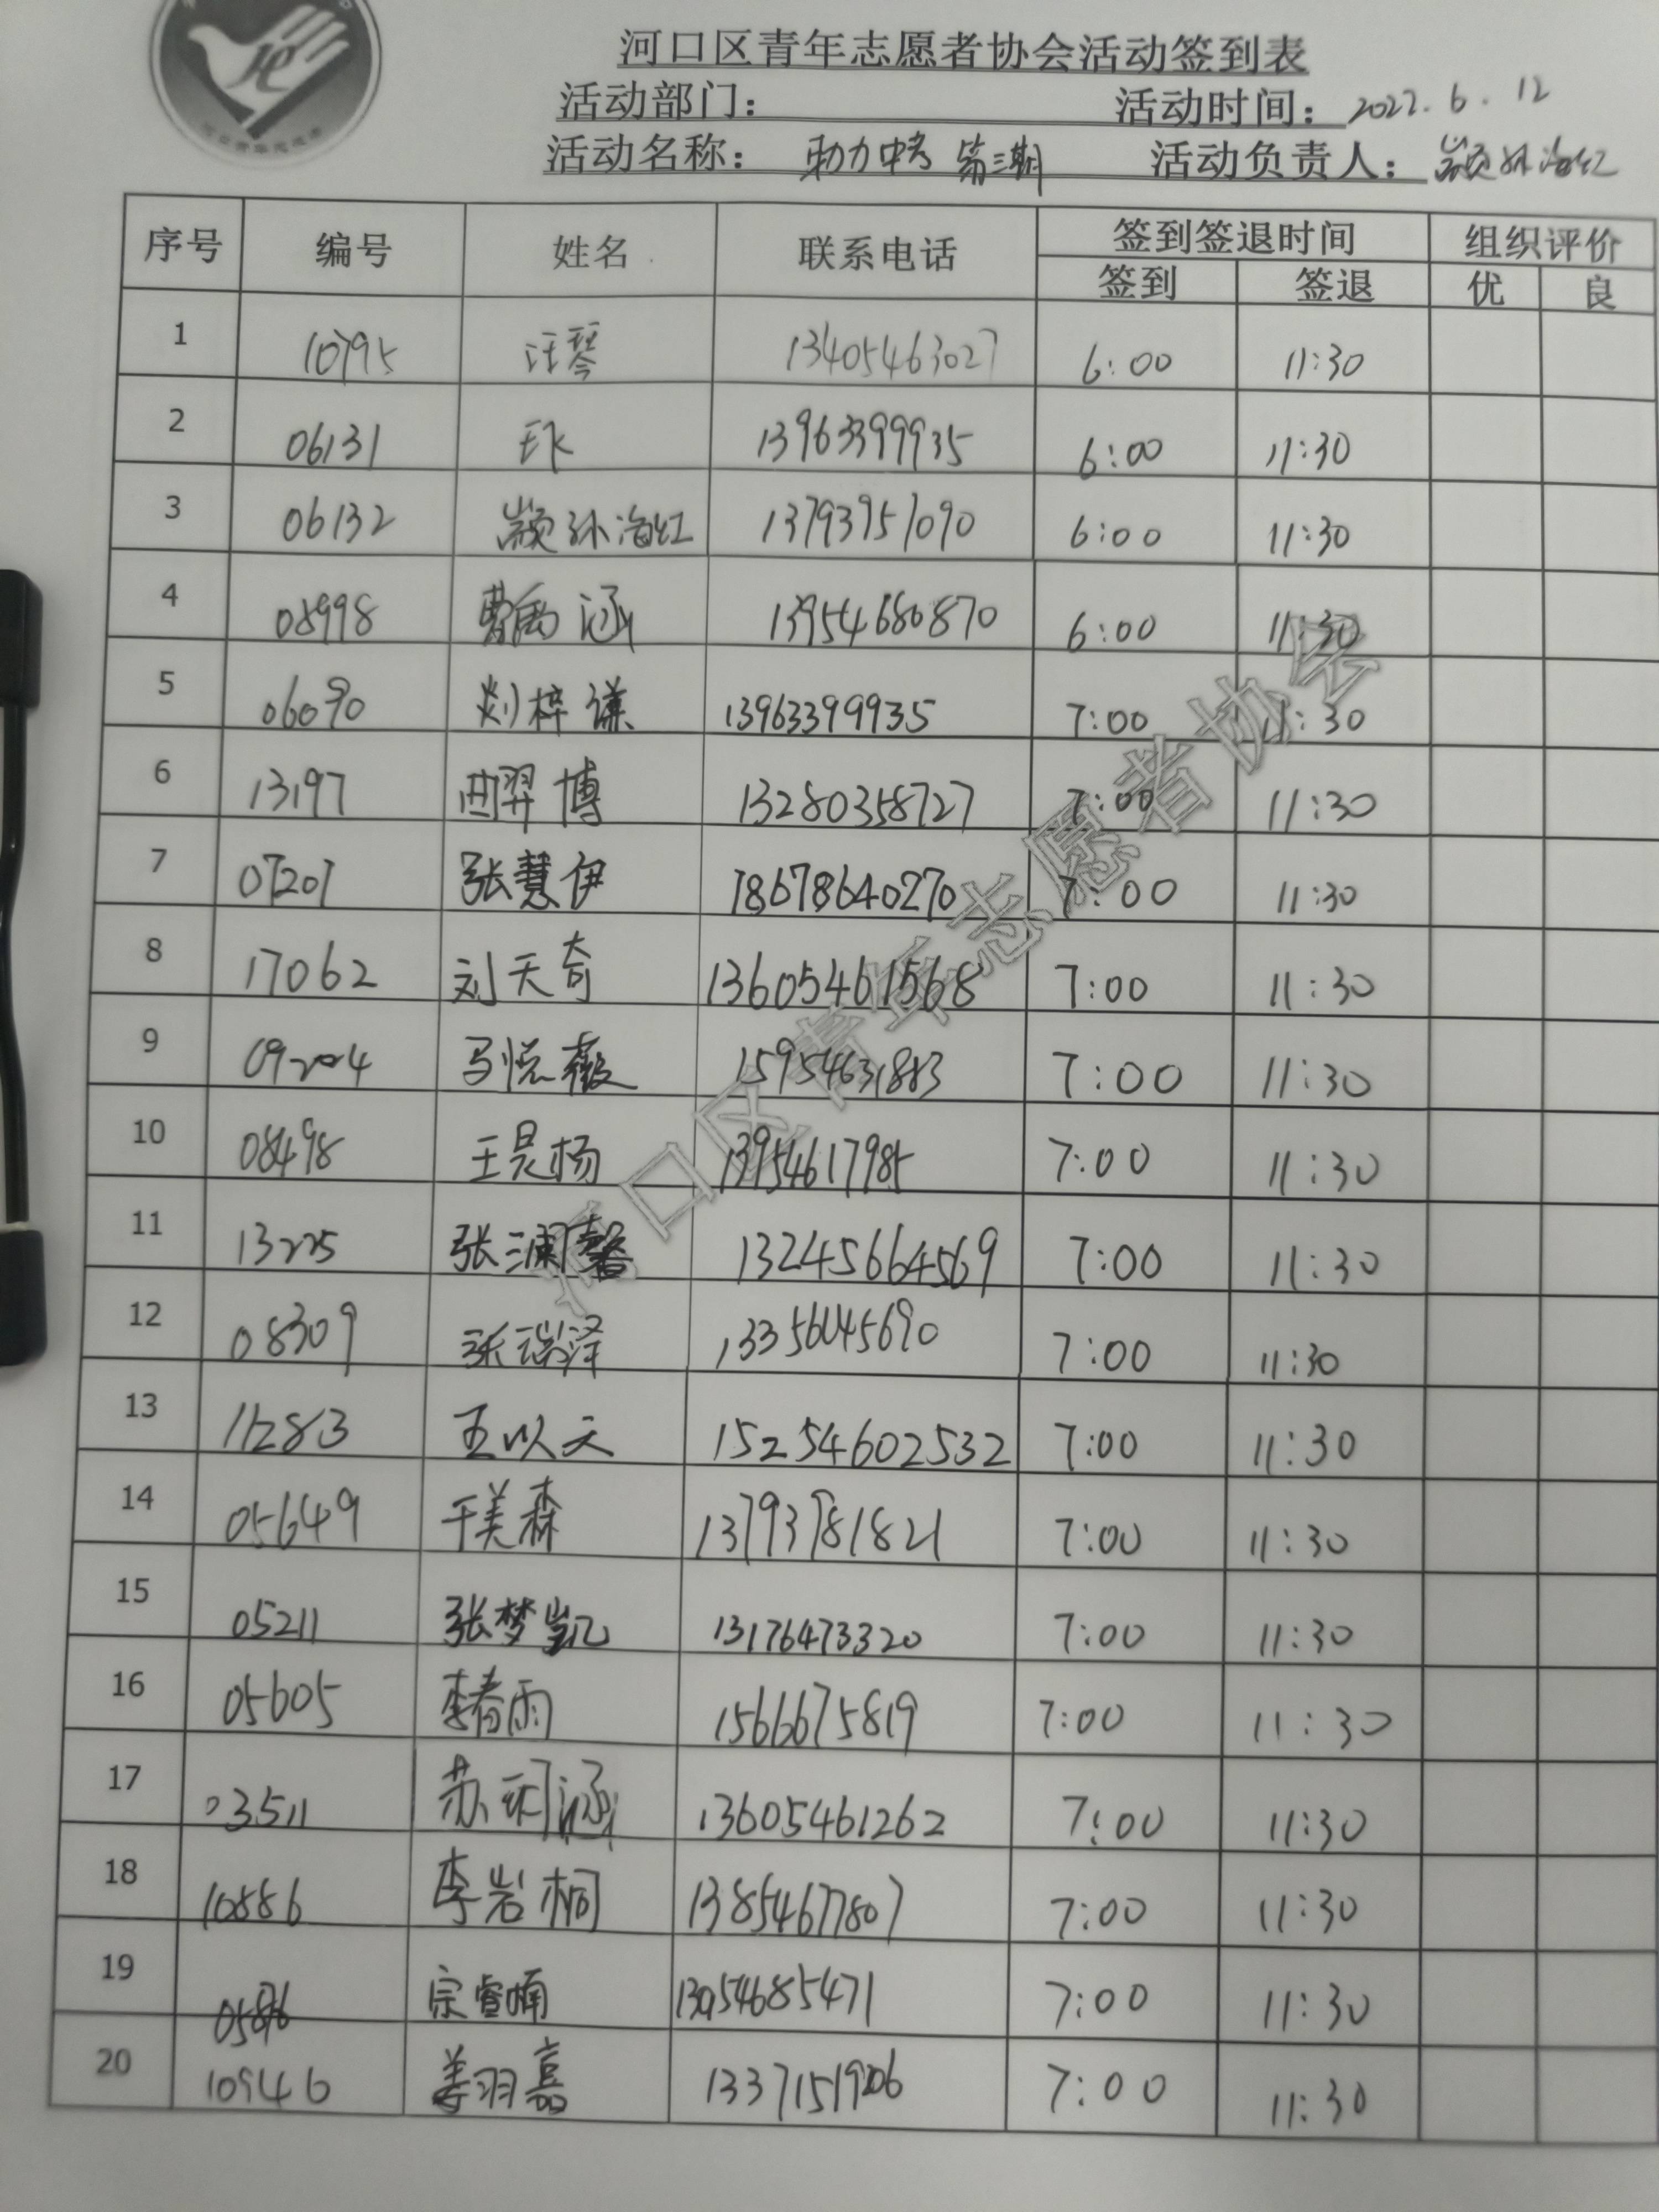 河口区青年志愿者协会活动签到表
活动部门： 活动时间：2022.6.12
活动名称：助力中考 第三期 活动负责人：颛孙海红
序号 编号 姓名 联系电话 签到签退时间 组织评价
签到 签退 优 良
1 10795 汪琴 13405463027 6:00 11:30
2 06131 13963399935 6:00 11:30
3 06132 颛孙海红 13793757090 6:00 11:30
4 08998 曹禹涵 13954680870 6:00 11:30
5 06090 刘梓谦 13963399935 7:00 11:30
6 13197 曲羿博 13280358727 7:00 11:30
7 07207 张慧伊 18678640270 7:00 11:30
8 17062 刘天奇 13605461568 7:00 11:30
9 09204 马悦薇 15954631883 7:00 11:30
10 08498 王昊杨 13954617985 7:00 11:30
11 13225 张澜馨 13245664569 7:00 11:30
12 08309 张瑞泽 13356045690 7:00 11:30
13 11283 王以天 15254602532 7:00 11:30
14 05649 于美森 13793781821 7:00 11:30
15 05211 张梦凯 13176473320 7:00 11:30
16 05605 李春雨 1566675819 7:00 11:30
17 03511 苏玥涵 13605461262 7:00 11:30
18 10886 李岩桐 13854677807 7:00 11:30
19 宗睿楠 13954685471 7:00 11:30
20 109446 姜羽嘉 13371519206 7:00 11:30
河口区青年志愿者协会